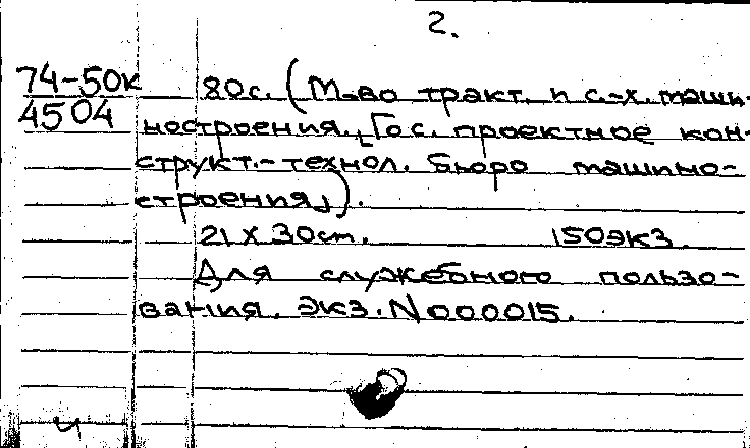 2.
74-50к
4504
80с. (М-во тракт. и с.-х. машин-
ностроения. Гос. проектное кон-
структ.-технол. бюро машино-
строения).
21 х 30см. 150экз.
Для служебного пользо-
вания. Экз. N 000015.